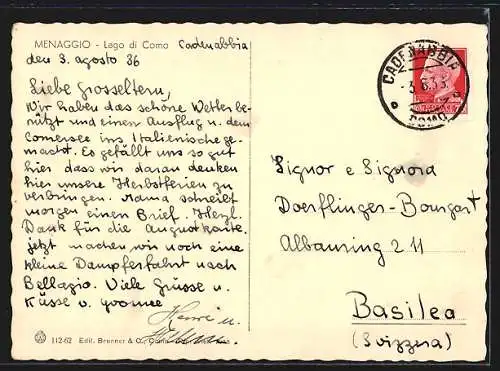 MENAGGIO - Lago di Como Cadenabbia
den 3. agosto 36
Liebe Grosseltern,
Wir haben das schöne Wetter be-
nützt und einen Ausflug u. dem
Comersee ins Italienische ge-
macht. Es gefällt uns so gut
hier dass wir daran denken
hier unsere Herbstferien zu
verbringen. Mama schreibt
morgen einen Brief. Herzl.
Dank für die Augustkarte.
jetzt machen wir noch eine
kleine Dampferfahrt nach
Bellagio. Viele Grüsse u.
Küsse v. Yvonne
u.
112-62 Edit. Brunner & C., Como
CADENABBIA
COMO
Signor e Signora
Doerflinger-Bomgart
Albanring 211
Basilea
(Svizzera)